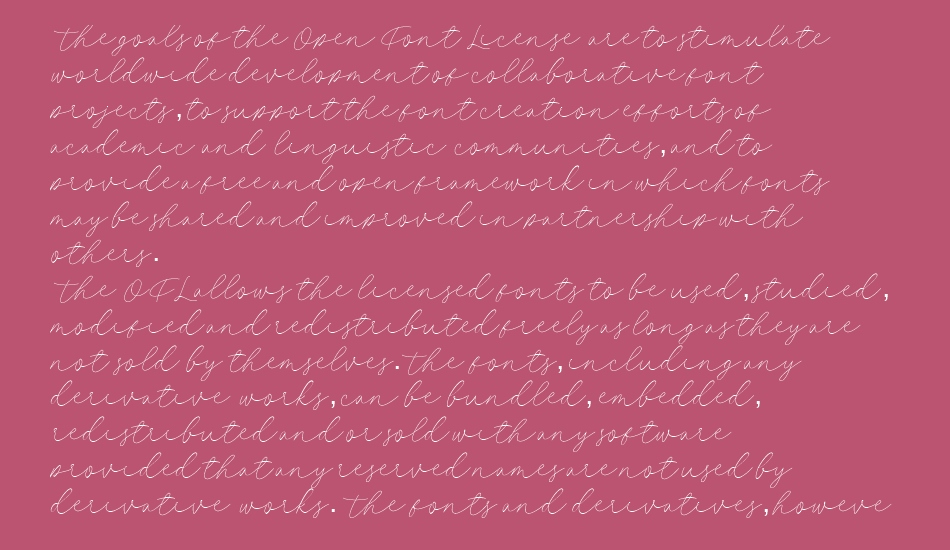 The goals of the Open Font License are to stimulate
worldwide development of collaborative font
projects, to support the font creation efforts of
academic and linguistic communities, and to
provide a free and open framework in which fonts
may be shared and improved in partnership with
others.
The OFL allows the licensed fonts to be used, studied,
modified and redistributed freely as long as they are
not sold by themselves. The fonts, including any
derivative works, can be bundled, embedded,
redistributed and or sold with any software
provided that any reserved names are not used by
derivative works. The fonts and derivatives, howeve